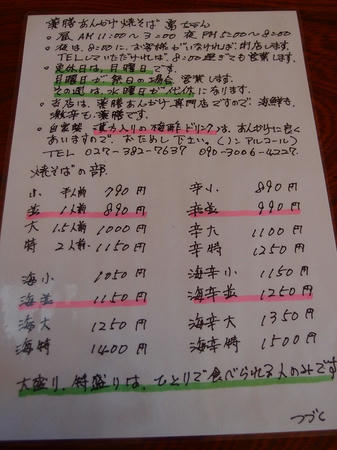 薬膳あんかけ焼そば 葛ちゃん
○ 昼 AM 11:00〜3:00 夜 PM 5:00〜8:00
○ 夜は、8:00に、お客様がいなければ閉店します。
TELしていただければ、8:00過ぎても営業します。
○ 定休日は、月曜日です。
月曜日が祭日の場合、営業します。
その週は、水曜日が代休になります。
○ 当店は、薬膳あんかけ専門店ですので、海鮮も、
激辛も、薬膳です。
○ 自家製 漢方入りの梅酢ドリンクは、あんかけに良く
あいますので、おためし下さい。(ノンアルコール)
TEL 027-382-7637 090-3006-4227
焼そばの部
小 半人前 790円
並 1人前 890円
大 1.5人前 1000円
特 2人前 1150円
辛小 890円
辛並 990円
辛大 1100円
辛特 1250円
海小 1050円
海並 1150円
海大 1250円
海特 1400円
海辛小 1150円
海辛並 1250円
海辛大 1350円
海辛特 1500円
大盛り、特盛りは、ひとりで食べられる人のみです
つづく